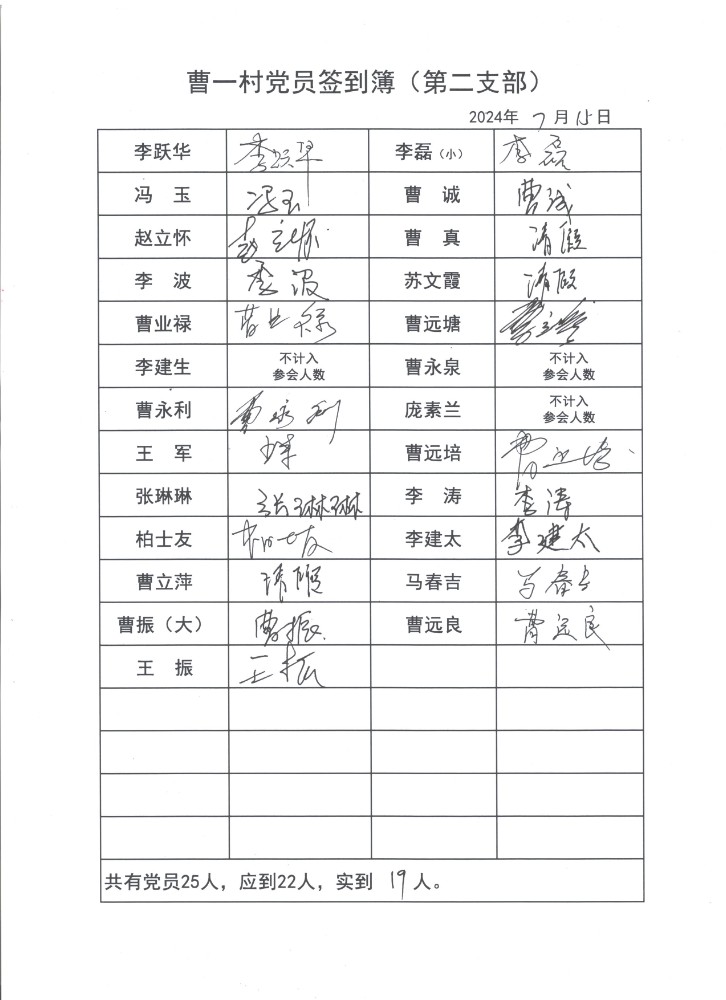 曹一村党员签到簿（第二支部）
2024年 7月15日
李跃华 李跃华 李磊（小） 李磊
冯 玉 冯玉 曹 诚 曹诚
赵立怀 赵立怀 曹 真 请假
李 波 李波 苏文霞 请假
曹业禄 曹业禄 曹远塘
李建生 不计入 曹永泉 不计入
参会人数 参会人数
曹永利 曹永利 庞素兰 不计入
参会人数
王 军 王军 曹远培 曹远培
张琳琳 张琳琳 李 涛 李涛
柏士友 柏士友 李建太 李建太
曹立萍 请假 马春吉 马春吉
曹振（大） 曹振 曹远良 曹远良
王 振 王振
共有党员25人，应到22人，实到 19 人。